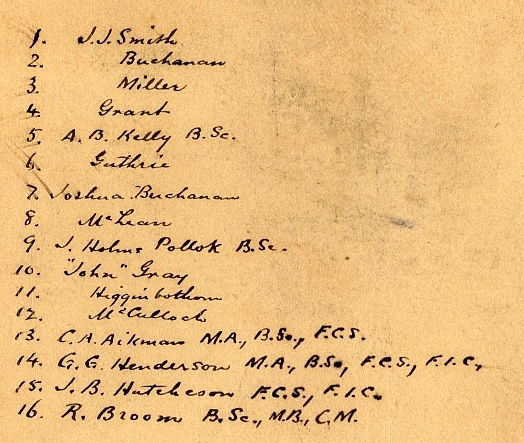 1. J. J. Smith
2. Buchanan
3. Miller
4. Grant
5. A. B. Kelly B. Sc.
6. Guthrie
7. Joshua Buchanan
8. McLean
9. J. Holms Pollok B. Sc.
10. "John" Gray
11. Higginbothom
12. McCulloch
13. C. A. Aikman M.A., B.Sc., F.C.S.
14. G. G. Henderson M.A., B.Sc, F.C.S., F.I.C.,
15. J. B. Hutcheson F.C.S., F.I.C.
16. R. Broom B.Sc., M.B., C.M.